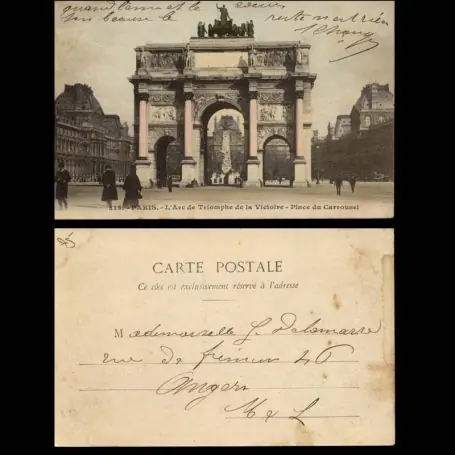 quand l'âme et le coeur
son beau le reste n'est rien
115. - PARIS. - L'Arc de Triomphe de la Victoire - Place du Carrousel
CARTE POSTALE
Ce côté est exclusivement réservé à l'adresse
Mademoiselle G. Delamarre
rue de 46
Angers
M & L